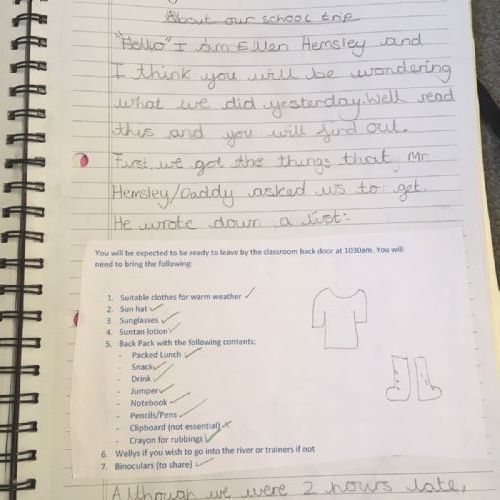 About our school trip
"Hello" I am Ellen Hemsley and
I think you will be wondering
what we did yesterday. Well read
this and you will find out.
First we got the things that Mr
Hemsley/Daddy asked us to get.
He wrote down a list:
You will be expected to be ready to leave by the classroom back door at 1030am. You will
need to bring the following:
1. Suitable clothes for warm weather
2. Sun hat
3. Sunglasses
4. Suntan lotion
5. Back Pack with the following contents:
- Packed Lunch
- Snack
- Drink
- Jumper
- Notebook
- Pencils/Pens
- Clipboard (not essential)
- Crayon for rubbings
6. Wellys if you wish to go into the river or trainers if not
7. Binoculars (to share)
Although we were 2 hours late,